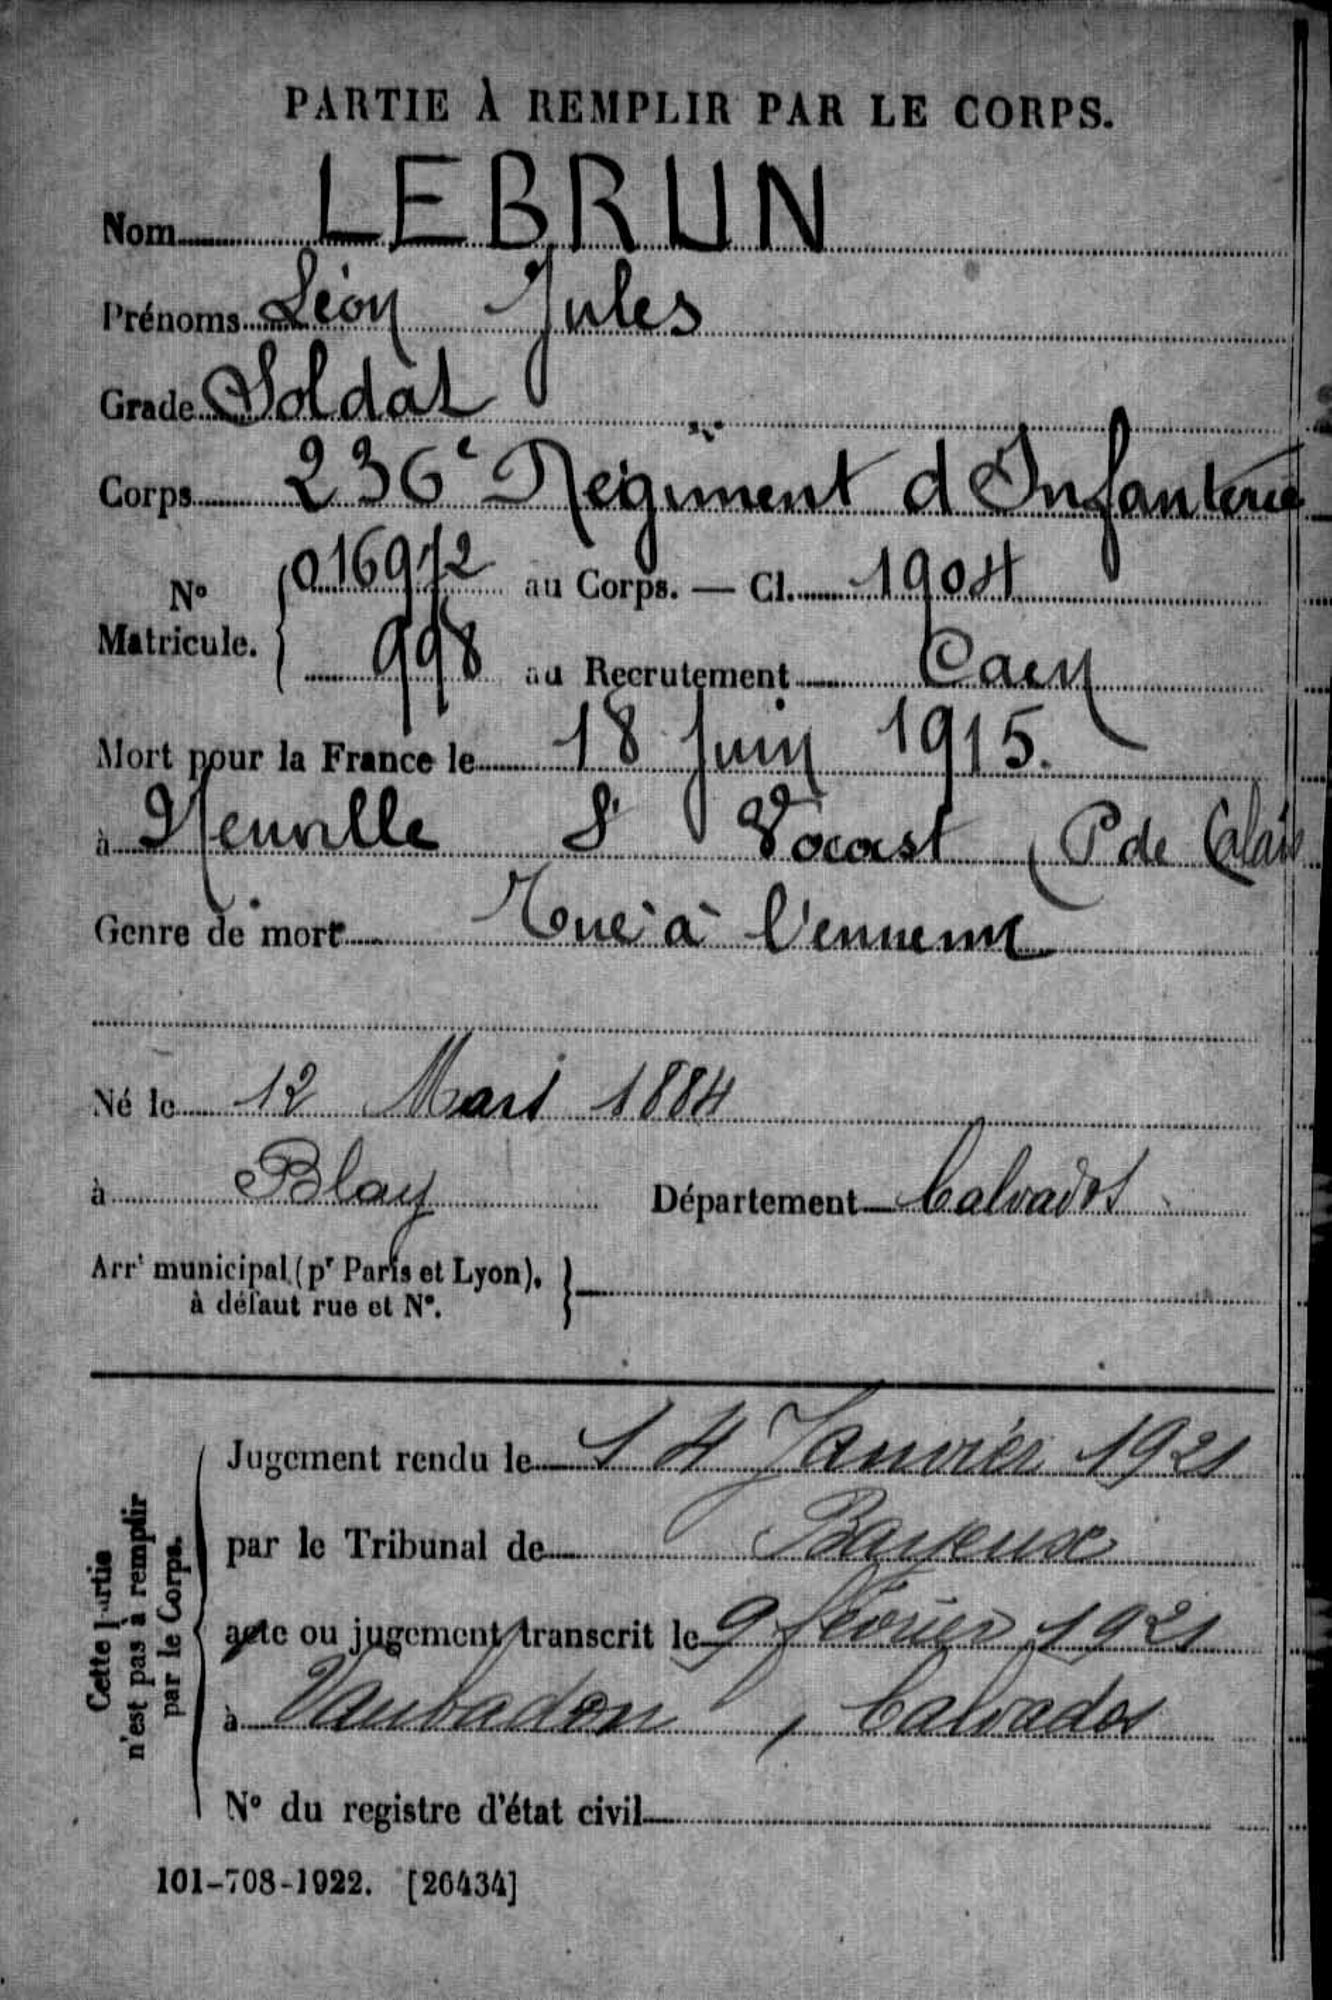 PARTIE À REMPLIR PAR LE CORPS.
Nom LEBRUN
Prénoms Léon Jules
Grade Soldat
Corps 236e Régiment d Infanterie
No Matricule. { 016912 au Corps. — Cl. 1904
998 au Recrutement Caen
Mort pour la France le 18 Juin 1915.
à Neuville St Vocast (P de Calais
Genre de mort Tué à l'ennemi
Né le 12 Mars 1884
à Blay Département Calvados
Arrt municipal (pr Paris et Lyon), }
à défaut rue et No.
Cette partie
n'est pas à remplir
par le Corps.
Jugement rendu le 14 Janvier 1921
par le Tribunal de Bayeux
acte ou jugement transcrit le 9 février 1921
à Vaubadon, Calvados
No du registre d'état civil
101-708-1922. [26434]